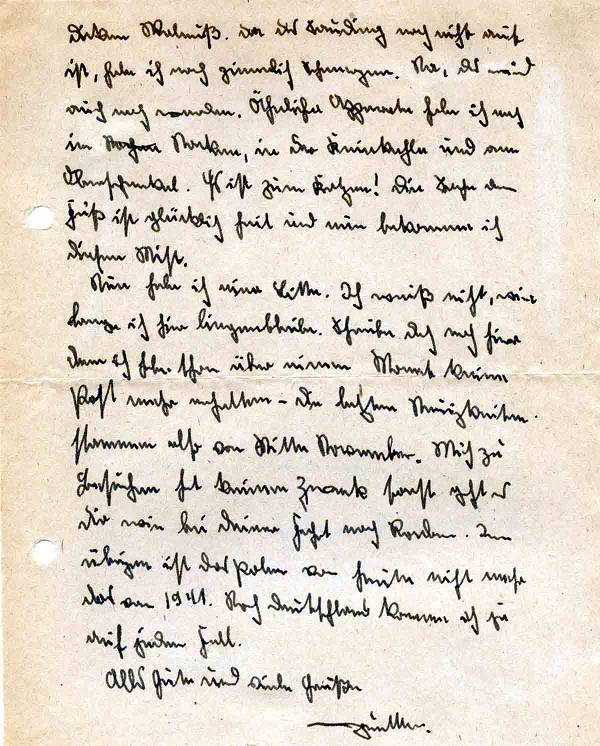 dicken Walnuß. da das Ding noch nicht auf
ist, habe ich noch ziemlich Schmerzen. Na, das wird
auch noch werden. Ähnliche Apparate habe ich noch
im Nacken, in der Kniekehle und am
Oberschenkel. Es ist zum Kotzen! Die Sache am
Fuß ist glücklich heil und nun bekomme ich
diesen Mist.
Nun habe ich eine Bitte. Ich weiß nicht, wie
lange ich hier liegenbleibe. Schreibe doch noch hier
denn ich habe schon über einen Monat keine
Post mehr erhalten – die letzten Neuigkeiten
stammen also von Mitte November. Mich zu
besuchen hat keinen Zweck sonst geht es
dir wie bei deiner Fahrt nach Norden. Im
übrigen ist das Polen von heute nicht mehr
das von 1941. Nach Deutschland komme ich ja
auf jeden Fall.
Alles Gute und viele Grüße
Günther.